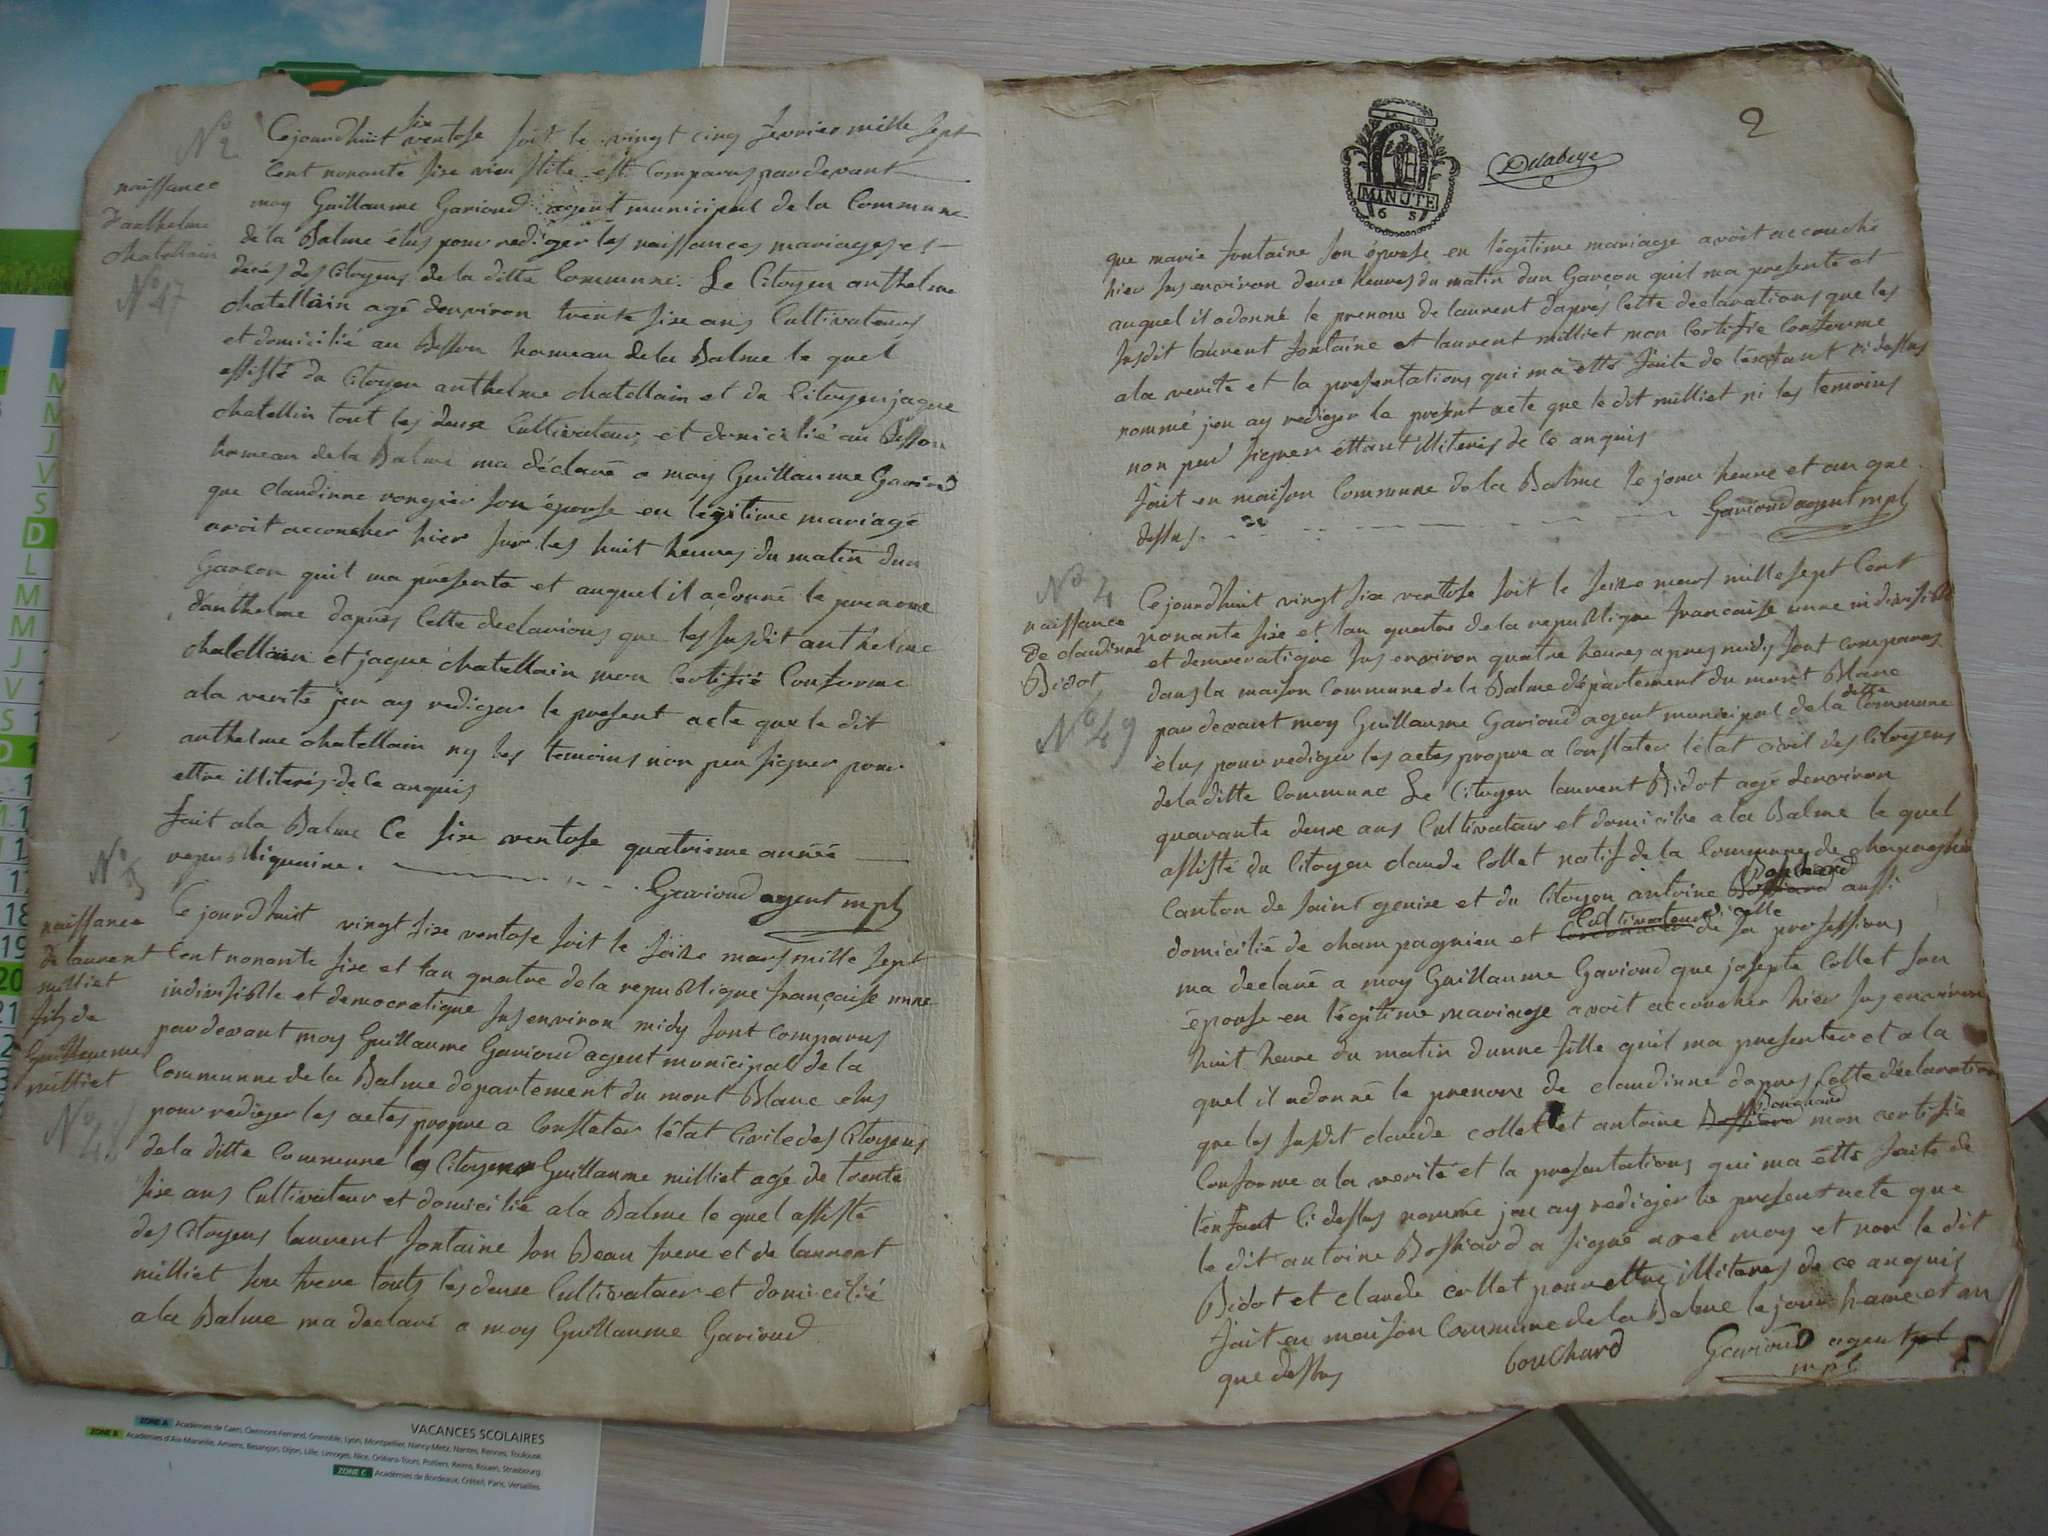 N° 2
naissance
d'anthelme
chatellain
N° 47
Cejourdhuit six ventose soit le vingt cinq fevrier mille sept
Cent nonante sixe vieu stile est Comparus pardevant
moy Guillaume Garioud agent municipal de la Commune
de la Balme élus pour rediger les naissances mariages et
decés des Citoyens de la ditte Commune. Le Citoyen anthelme
chatellain agé denviron trente sixe ans Cultivateurs
et domicilié au Besson hameau de la Balme le quel
assisté du Citoyen anthelme chatellain et du Citoyen jaque
chatellin tout les deux Cultivateurs et domicilié au Besson
hameau de la Balme ma déclaré a moy Guillaume Gavioud
que claudinne vongier son épouse en legitime mariage
avoit accoucher hier sur les huit heures du matin dun
Garcon quit ma présenté et auquel il adonné le prenome
danthelme daprés Cette declarions que les susdit anthelme
chatellain et jaque chatellain mon Certifié Conforme
ala verité jen ay rediger le present acte que le dit
anthelme chatellain ny les temoins non peu signer pour
ettre illiterés de Ce anquis
fait ala Balme Ce sixe ventose quatrieme année
republiquaine. Gavioud agent mpl
N° 3
naissance
de laurent
milliet
fils de
Guillaume
milliet
N° 48
Ce jourdhuit vingt sixe ventose soit le seize mars mille sept
Cent nonante sixe et lan quatre de la republique française unne
indivisible et democratique sus environ midy sont Comparus
pardevant moy Guillaume Garioud agent municipal de la
Communne de la Balme departement du mont Blanc elus
pour rediger les actes propre a Constater létat Civile des Citoyens
de la ditte Commune le Citoyen Guillaume milliet agé de trente
sixe ans Cultivateur et domicilié ala Balme le quel assisté
des Citoyens laurent fontaine son Beau frere et de laurent
milliet son frere touts les deuxe Cultivateur et domicilié
ala Balme ma declaré a moy Guillaume Garioud
2
MINUTE
6 S
Delabeye
que marie fontaine son épouse en légitime mariage avoit accouché
hier sus environ deuxe heures du matin dun Garcon quil ma presenté et
auquel il adonné le prenom de laurent daprés Cette declarations que les
susdit laurent fontaine et laurent milliet mon Certifié Conforme
ala verité et la presentations qui ma etté faite de lenfant ci dessus
nommé jen ay rediger le présent acte que le dit milliet ni les temoins
non peu signer éttant illiterés de Ce anquis
fait en maison Commune de la Balme le jour heure et an que
dessus. Garioud agent mpl
N° 4
naissance
De claudinne
Bidot
N° 49
Cejourdhuit vingt sixe ventose soit le seize mars mille sept Cent
nonante sixe et lan quatre de la republique francaise unne indivisible
et democratique sus environ quatre heures apres midy sont comparus
dans la maison Commune de la Balme département du mont Blanc
pardevant moy Guillaume Garioud agent municipal de la ditte Commune
élus pour rediger les actes propre a Constater létat Civil des Citoyens
de la ditte Commune Le Citoyen laurent Bidot agé denviron
quarante deuxe ans Cultivateur et domicilié ala Balme le quel
assisté du Citoyen claude Collet natif de la Commune de champagnieu
Canton de saint genixe et du Citoyen antoine Bouchard aussi
domicilié de champagnieu et Cultivateur di celle de sa professions
ma declaré a moy Guillaume Garioud que josepte Collet son
épouse en légitime mariage avoit accoucher hier sus environ
huit heure du matin dunne fille quil ma presenter et ala
quel il adonné le prenom de claudinne dapres Cette déclaration
que les susdit claude collet et antoine Bouchard mon certifié
Conforme a la verité et la presentations qui ma étté faite de
lenfant Ci dessus nommé jen ay rediger le present acte que
le dit antoine Bossiard a signé avec moy et non le dit
Bidot et claude collet pour ettre illiteres de ce anquis
fait en maison Commune de la Balme le jour heure et an
que dessus bouchard Garioud agent
mpl
VACANCES SCOLAIRES
ZONE A Académies de Caen, Clermont-Ferrand, Grenoble, Lyon, Montpellier, Nancy-Metz, Nantes, Rennes, Toulouse
ZONE B Académies d'Aix-Marseille, Amiens, Besançon, Dijon, Lille, Limoges, Nice, Orléans-Tours, Poitiers, Reims, Rouen, Strasbourg
ZONE C Académies de Bordeaux, Créteil, Paris, Versailles